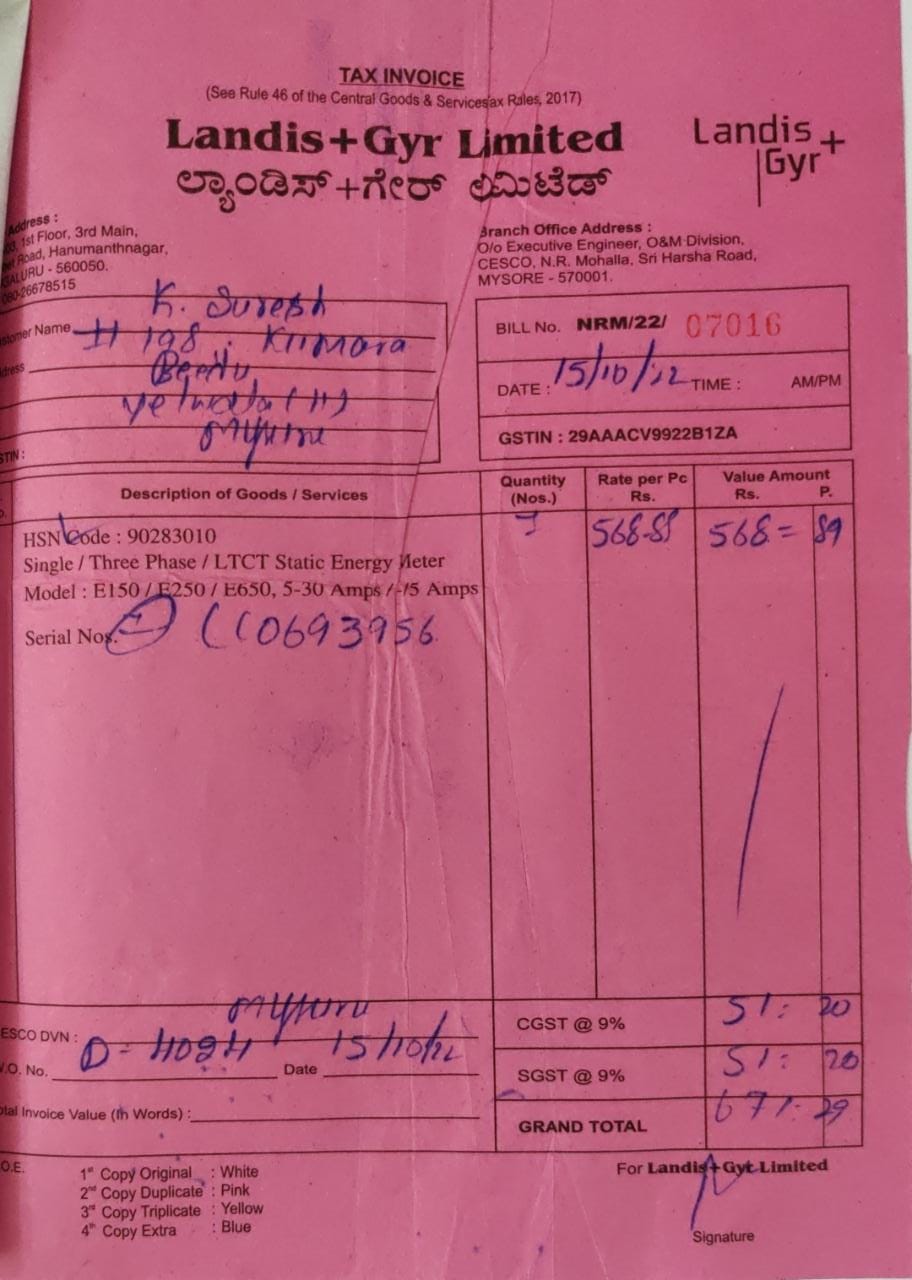 TAX INVOICE
(See Rule 46 of the Central Goods & Servicesax Rales, 2017)
Landis+Gyr Limited
ಲ್ಯಾಂಡಿಸ್+ಗೇರ್ ಲಿಮಿಟೆಡ್
Landis+
Gyr+
Address :
1st Floor, 3rd Main,
Road, Hanumanthnagar,
- 560050.
080-26678515
Branch Office Address :
O/o Executive Engineer, O&M Division,
CESCO, N.R. Mohalla, Sri Harsha Road,
MYSORE - 570001.
K. Suresh
Customer Name # 198. Kumara
Beedu
Yelwala (H)
Mysuru
BILL No. NRM/22/ 07016
DATE : 15/10/22 TIME : AM/PM
GSTIN : 29AAACV9922B1ZA
Description of Goods / Services
Quantity (Nos.)
Rate per Pc Rs.
Value Amount Rs. P.
HSN code : 90283010
568-89 568= 89
Single / Three Phase / LTCT Static Energy Meter
Model : E150 / E250 / E650, 5-30 Amps /-/5 Amps
Serial Nos. 0693956
Mysuru
CESCO DVN :
D-4094 15/10/22
W.O. No. Date
Total Invoice Value (In Words) :
CGST @ 9% 51: 20
SGST @ 9% 51: 20
GRAND TOTAL 671: 29
1st Copy Original : White
2nd Copy Duplicate : Pink
3rd Copy Triplicate : Yellow
4th Copy Extra : Blue
For Landis+Gyt Limited
Signature